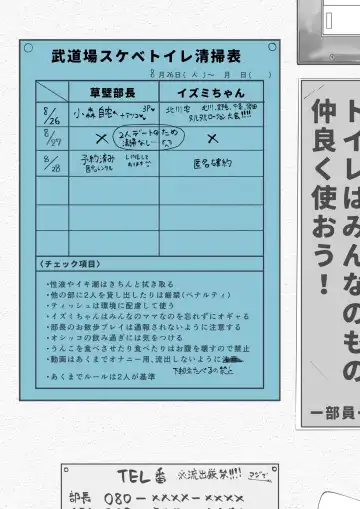 武道場スケベトイレ清掃表
8月26日(火)〜 月 日( )
草壁部長
イズミちゃん
8/26
小森自宅
3P
8/27
×
2人デートのため
清掃なし
×
8/28
予約済み
匿名確約
(チェック項目)
・性液やイキ潮はきちんと拭き取る
・他の部に2人を貸し出したりは厳禁(ペナルティ)
・ティッシュは環境に配慮して使う
・イズミちゃんはみんなのママなのを忘れずにオギャる
・部長のお散歩プレイは通報されないように注意する
・オシッコの飲み過ぎには気をつける
・うんこを食べさせたり食べたりはお腹を壊すので禁止
・動画はあくまでオナニー用、流出しないように
・あくまでルールは2人が基準
トイレはみんなのもの
仲良く使おう!
一部員一
TEL番
※流出厳禁!!!!
マジで
部長 080-××××-××××